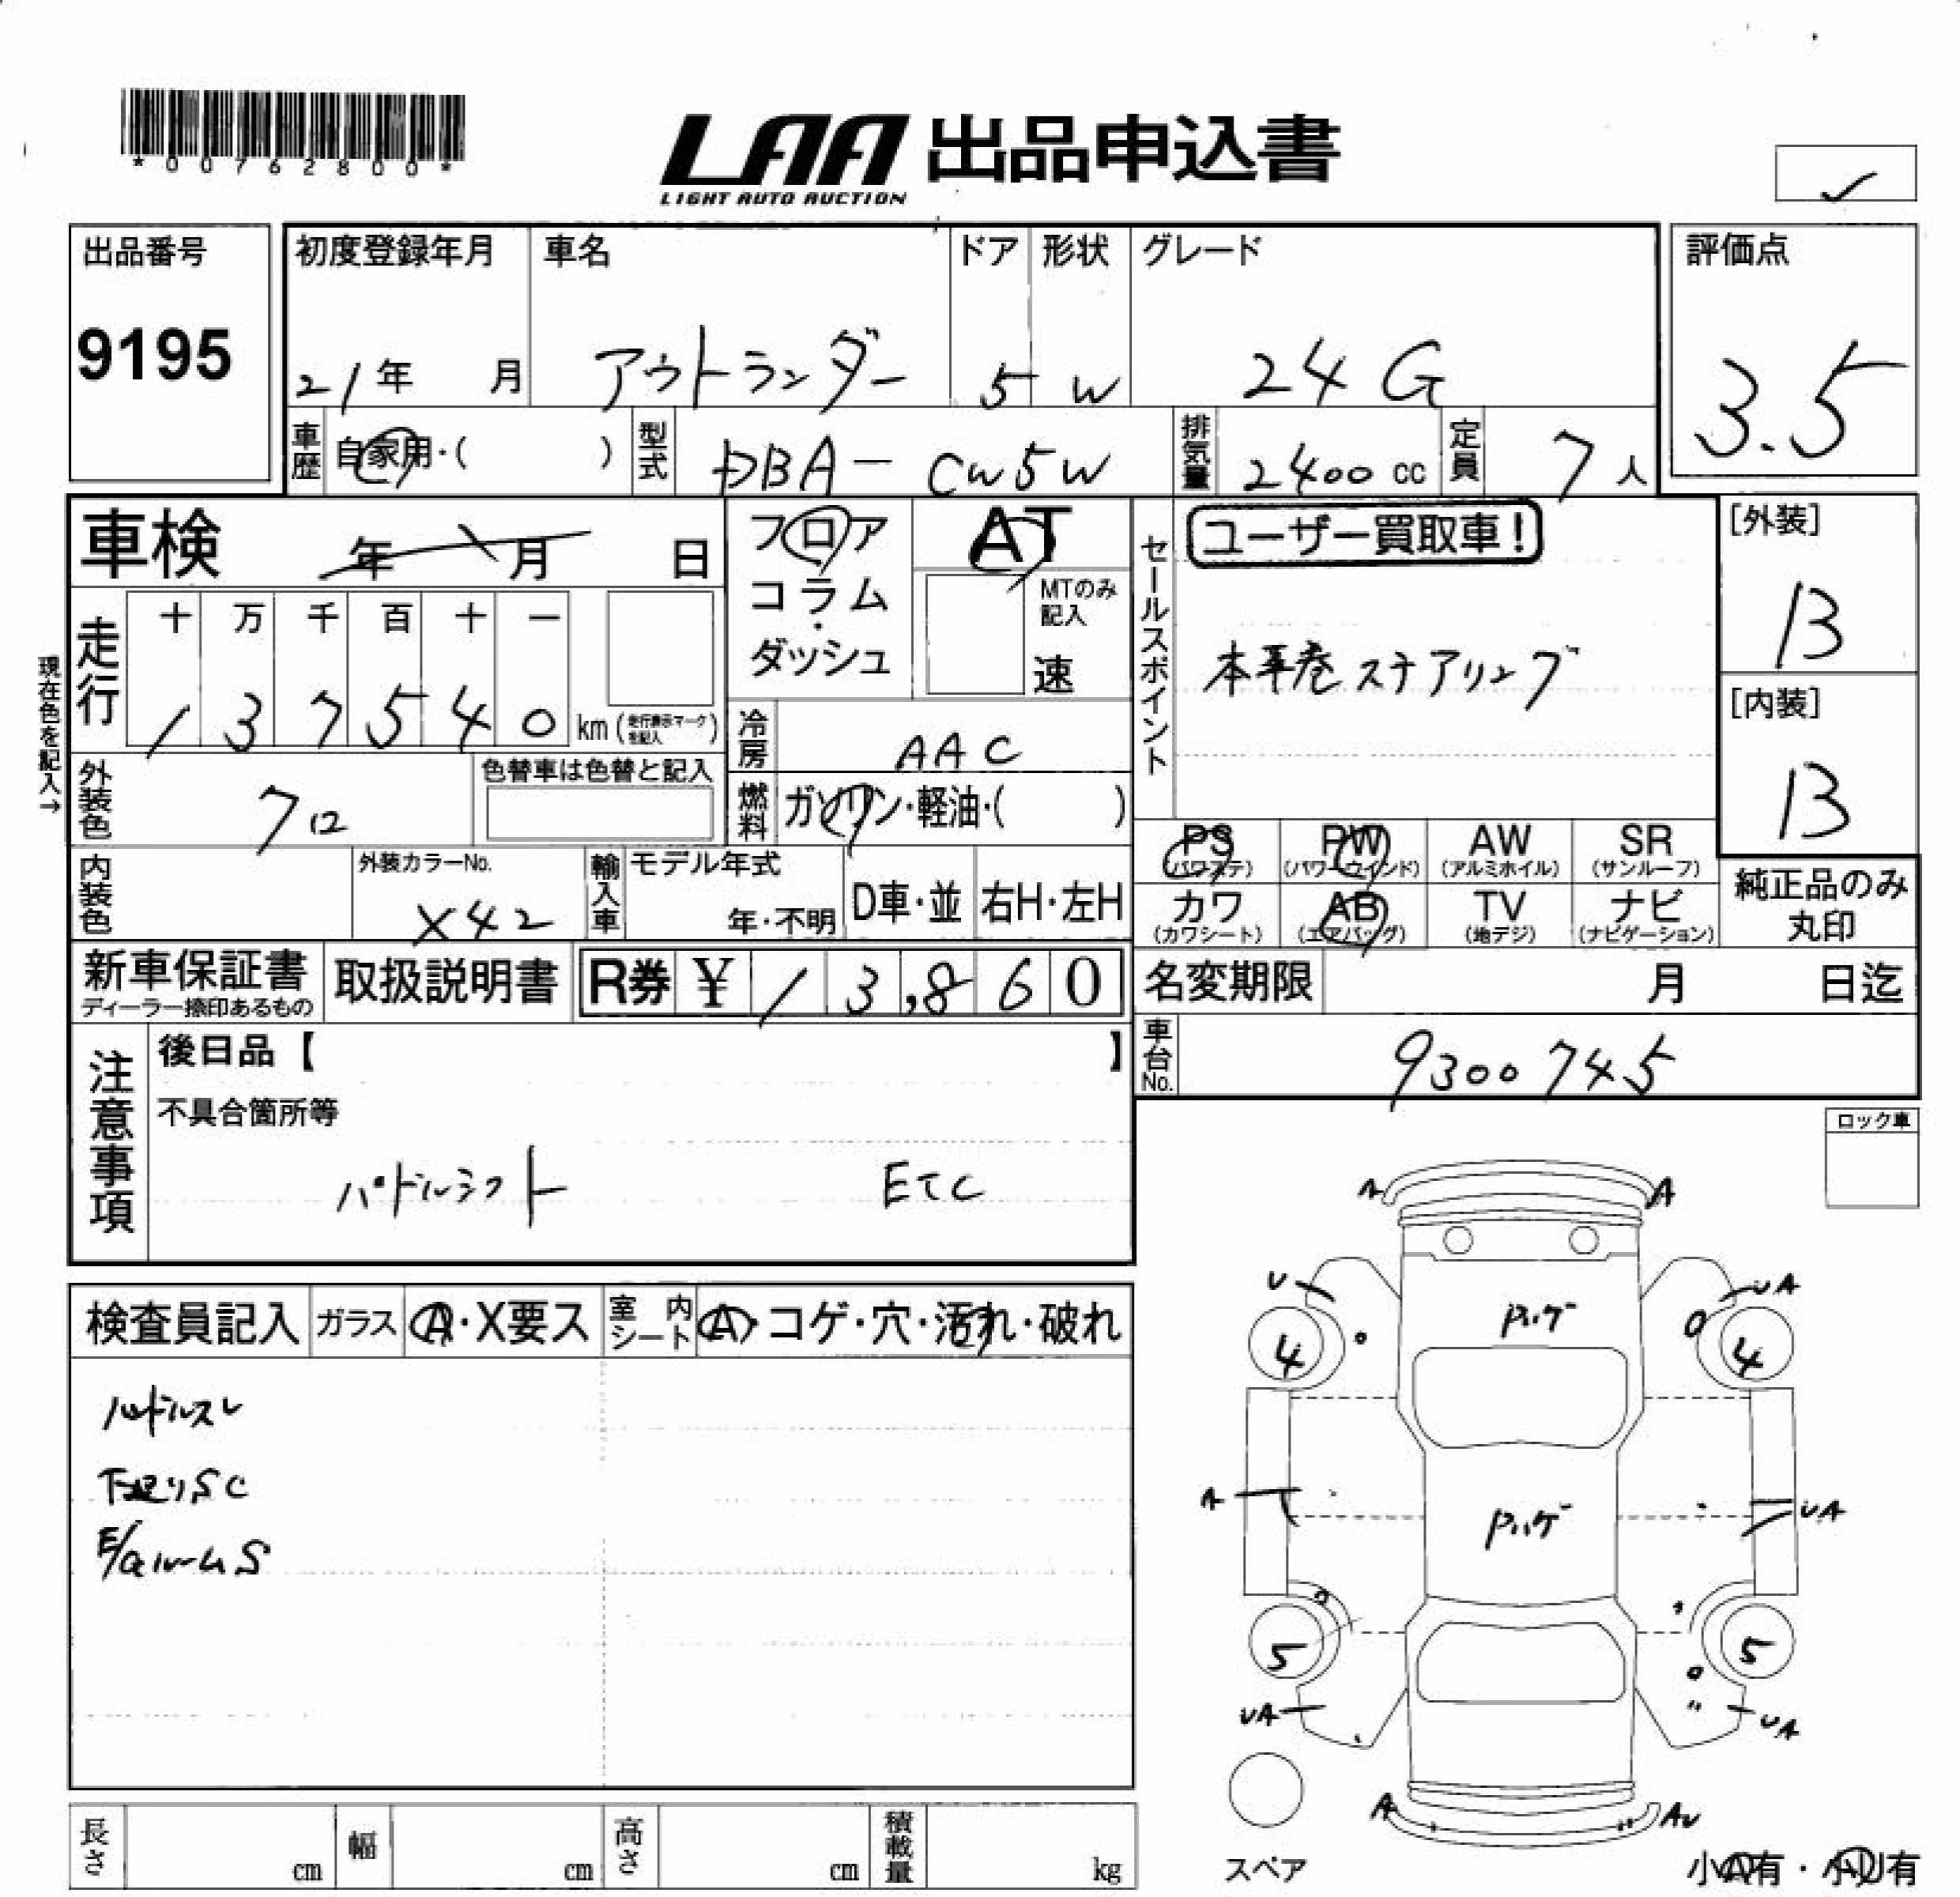 *00762800*
LAA 出品申込書
LIGHT AUTO AUCTION
出品番号
9195
初度登録年月
21年 月
車名
アウトランダー
ドア
5
形状
W
グレード
24G
評価点
3.5
車歴
自家用・( )
型式
DBA-CW5W
排気量
2400 cc
定員
7人
車検 年 月 日
現在色を記入→
走行
十 万 千 百 十 一
1 3 7 5 4 0 km (走行表示マークを記入)
フロア
コラム
・
ダッシュ
AT
MTのみ
記入
速
冷房
AAC
燃料
ガソリン・軽油・( )
セールスポイント
ユーザー買取車!
本革巻ステアリング
[外装]
B
[内装]
B
外装色
クロ
色替車は色替と記入
内装色
外装カラーNo.
X42
輸入車
モデル年式
年・不明
D車・並
右H・左H
PS
(パワステ)
PW
(パワーウインド)
AW
(アルミホイル)
SR
(サンルーフ)
カワ
(カワシート)
AB
(エアバッグ)
TV
(地デジ)
ナビ
(ナビゲーション)
純正品のみ
丸印
新車保証書
ディーラー捺印あるもの
取扱説明書
R券 ¥ 13,860
名変期限 月 日迄
車台No.
9300745
注意事項
後日品【 】
不具合箇所等
パドルシフト ETC
ロック車
検査員記入
ガラス
A・X要ス
室内
シート
A・コゲ・穴・汚れ・破れ
ハンドルスレ
下廻りSC
E/GルームS
A A
U UA
ハゲ
4 4
A UA
ハゲ
5 5
UA UA
A AU
スペア
小A有・小U有
長さ cm
幅 cm
高さ cm
積載量 kg